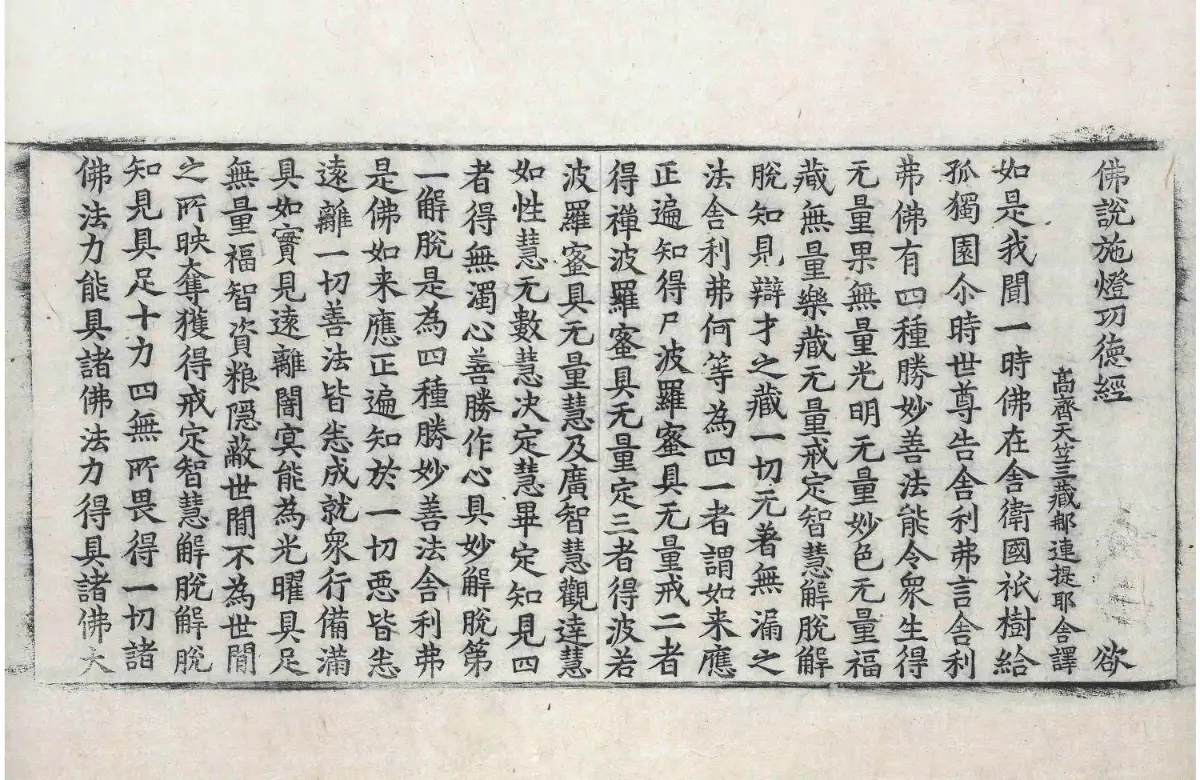 佛說施燈功德經 欲
高齊天竺三藏那連提耶舍譯
如是我聞一時佛在舍衛國祇樹給
孤獨園尒時世尊告舍利弗言舍利
弗佛有四種勝妙善法能令衆生得
无量果無量光明无量妙色无量福
藏無量樂藏无量戒定智慧解脫解
脫知見辯才之藏一切无著無漏之
法舍利弗何等為四一者謂如来應
正遍知得尸波羅蜜具无量戒二者
得禪波羅蜜具无量定三者得波若
波羅蜜具无量慧及廣智慧觀達慧
如性慧无數慧決定慧畢定知見四
者得無濁心善勝作心具妙解脫第
一解脫是為四種勝妙善法舍利弗
是佛如来應正遍知於一切惡皆悉
遠離一切善法皆悉成就衆行備滿
具如實見遠離闇冥能為光曜具足
無量福智資粮隱蔽世閒不為世閒
之所映奪獲得戒定智慧解脫解脫
知見具足十力四無所畏得一切諸
佛法力能具諸佛法力得具諸佛大